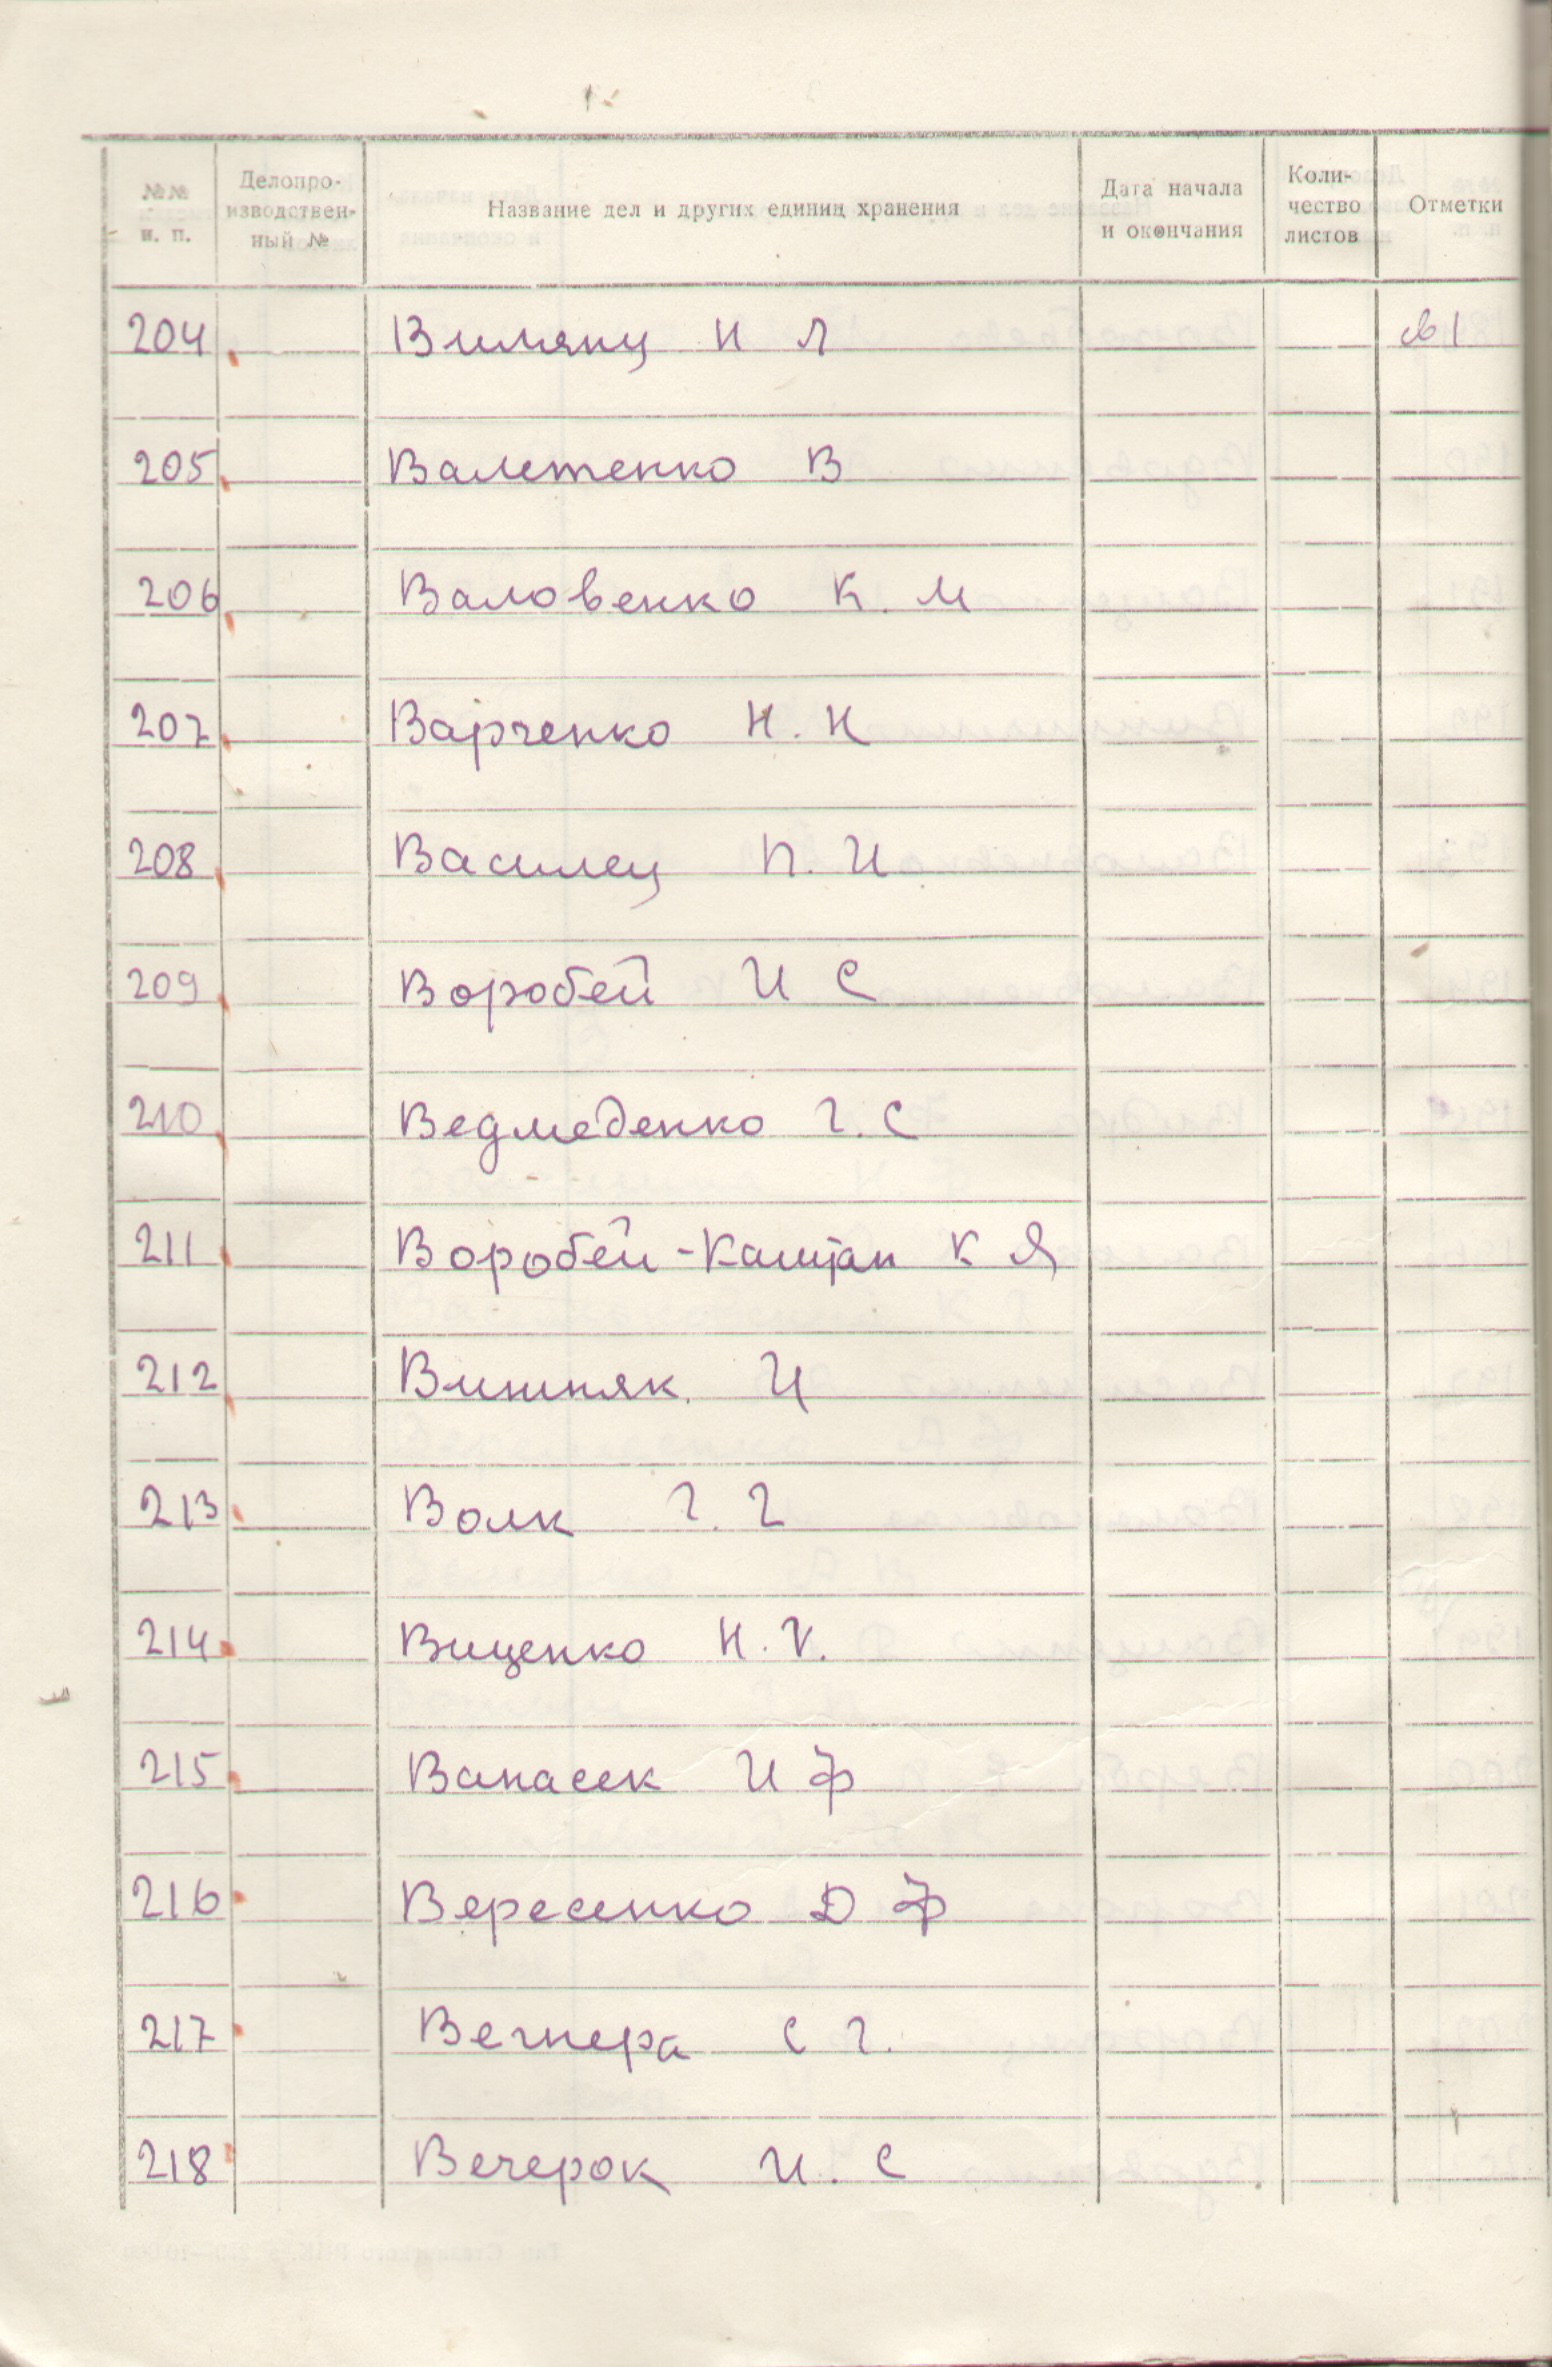 №№ п. п. Делопро-изводствен-ный № Название дел и других единиц хранения Дата начала и окончания Коли-чество листов Отметки
204 И Л
205 Валетенко В
206 Валовенко К. М
207 Варченко Н. Н
208 Василец П. И
209 Воробей И С
210 Ведмеденко Г. С
211 Воробей-Каштан К Я
212 Вишняк И
213 Волк Г. Г
214 Виценко Н. Г.
215 Ванасек И Ф
216 Вересенко Д Ф
217 Вегнера С Г.
218 Вечерок И. С